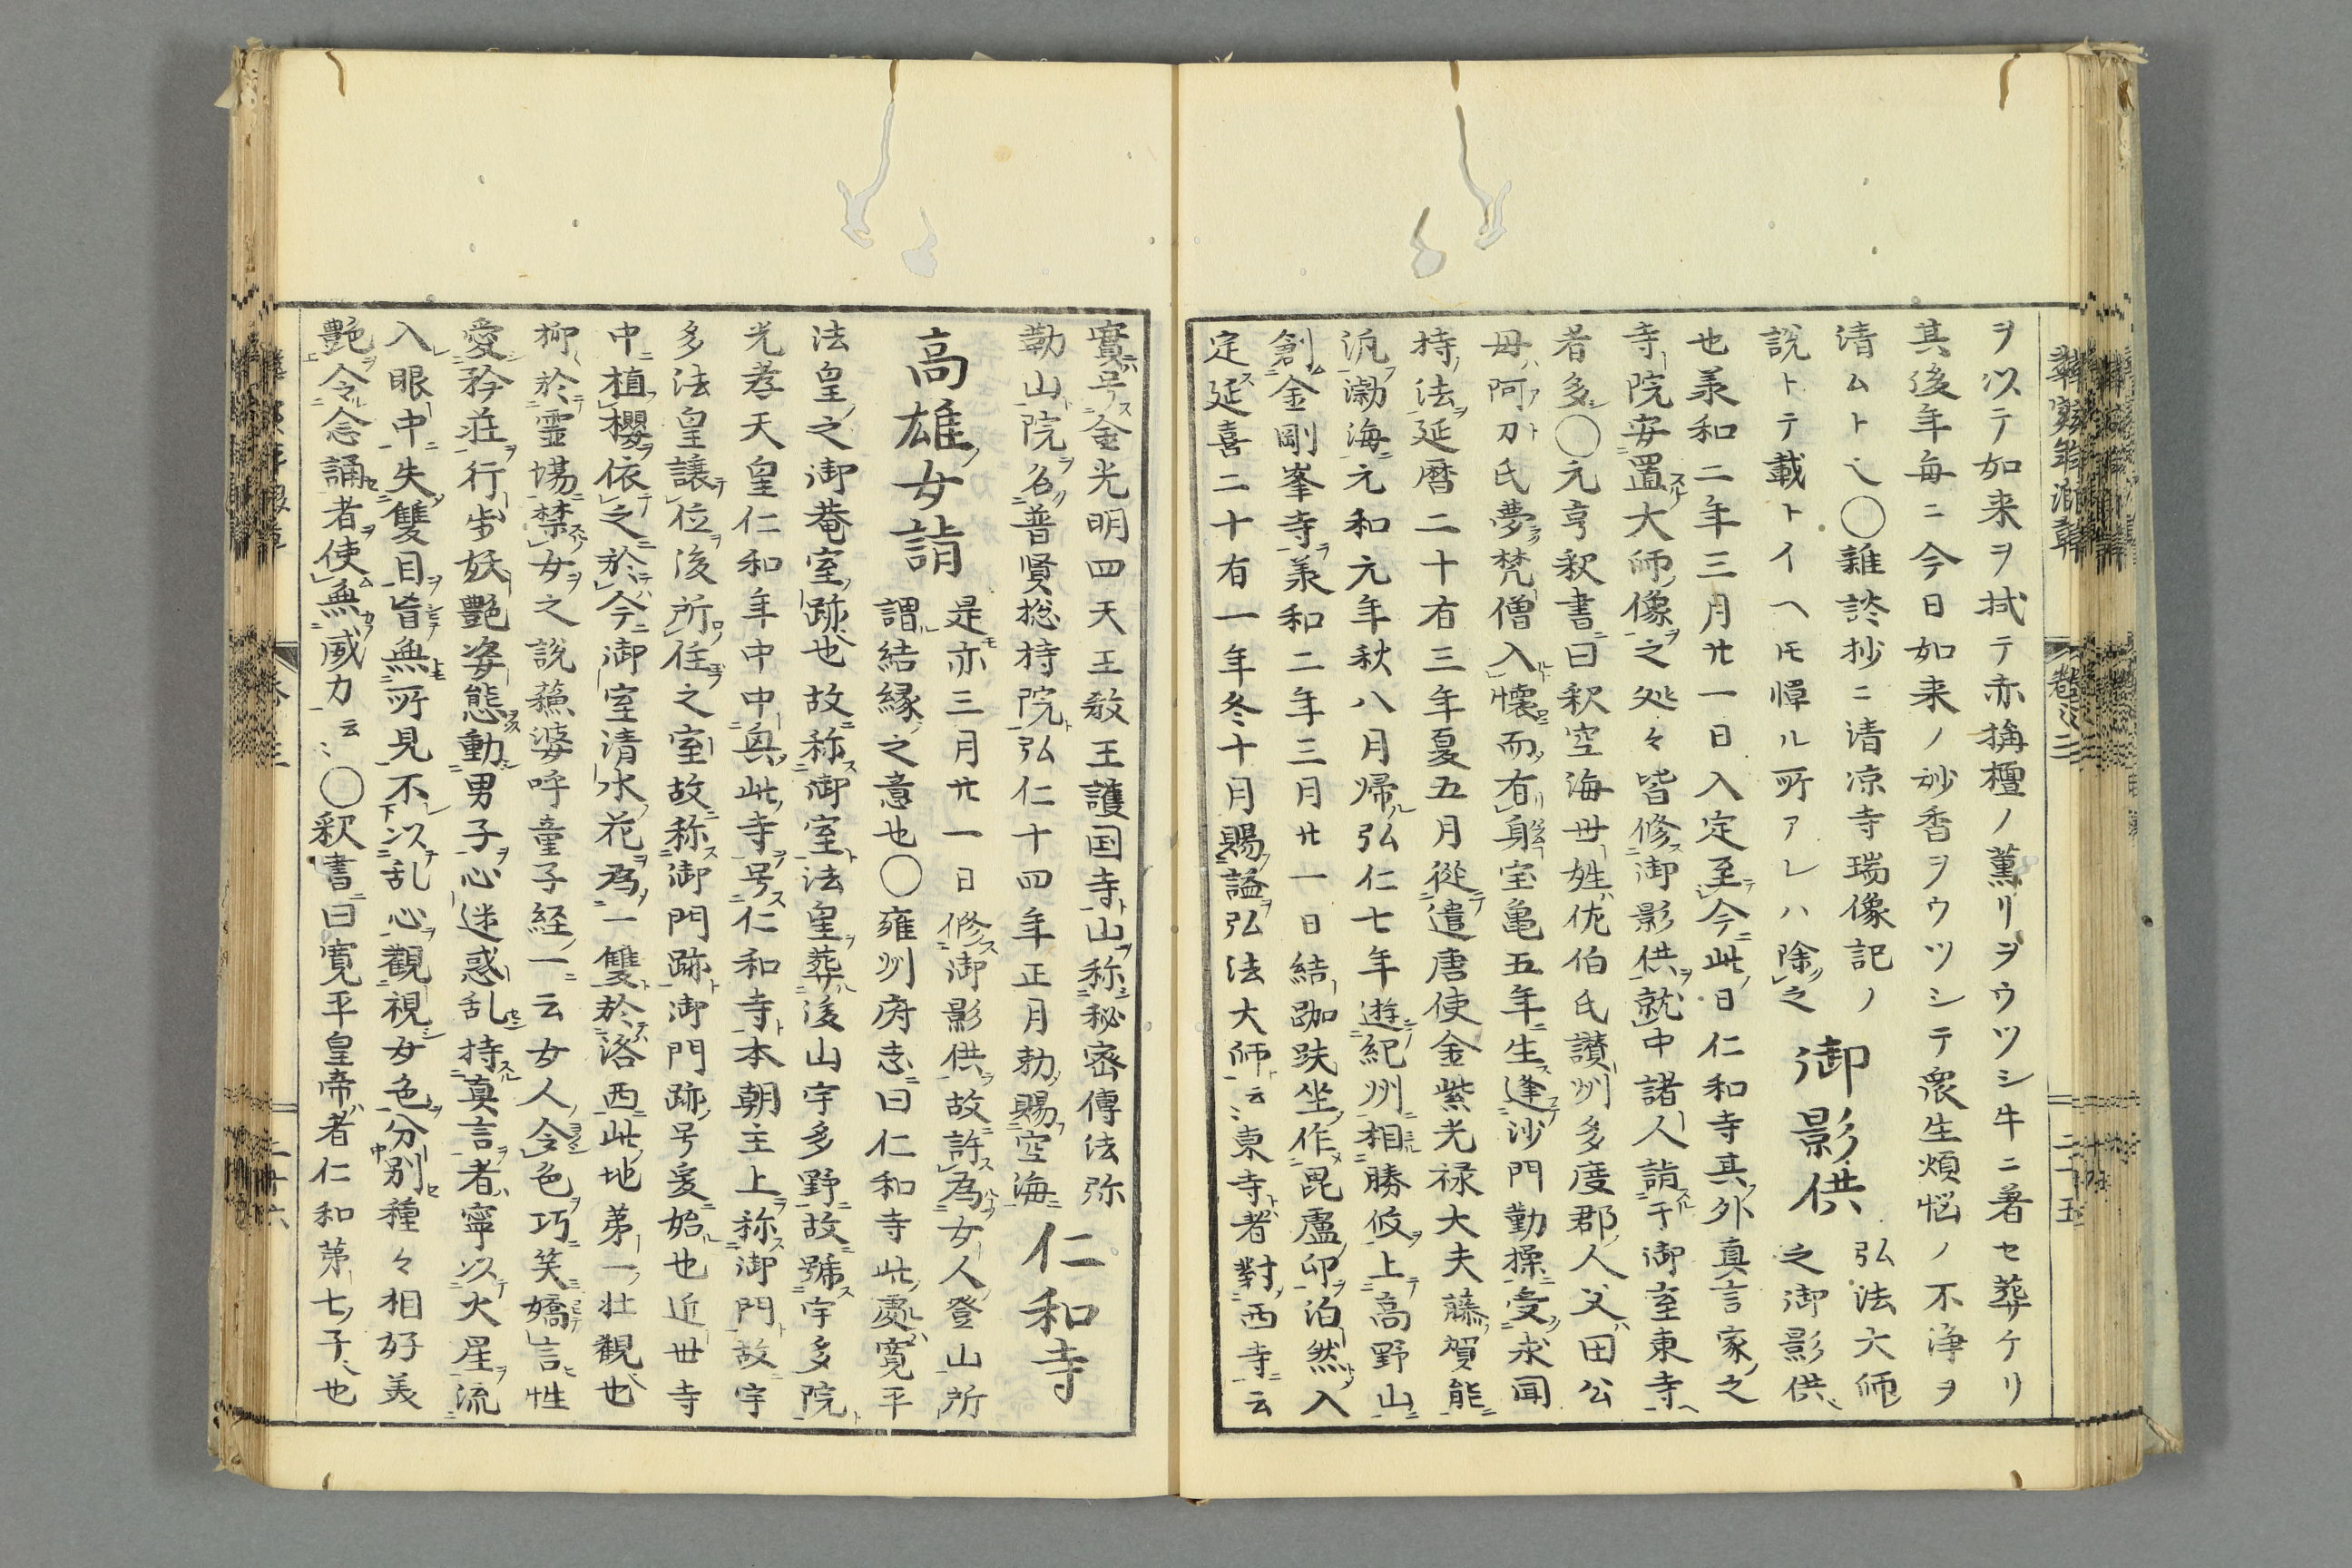 ヲ以テ如来ヲ拭テ赤旃檀ノ薫リヲウツシ牛ニ著セ葬ケリ
其後年毎ニ今日如来ノ妙香ヲウツシテ衆生煩悩ノ不浄ヲ
清ムト也〇雑談抄ニ清凉寺瑞像記ノ
説トテ載トイヘモ憚ル所アレハ除之
御影供
弘法大師
之御影供
也羕和二年三月廿一日入定至今此日仁和寺其外真言家之
寺院安置大師像之処々皆修御影供就中諸人詣于御室東寺
者多〇元亨釈書曰釈空海世姓佐伯氏讃州多度郡人父田公
母阿刀氏夢梵僧入懐而有身宝亀五年生逢沙門勤操受求聞
持法延暦二十有三年夏五月從遣唐使金紫光禄大夫藤賀能
汎渤海元和元年秋八月帰弘仁七年遊紀州相勝攸上高野山
創金剛峯寺羕和二年三月廿一日結跏趺坐作毘盧印泊然入
定延喜二十有一年冬十月賜謚弘法大師云云東寺者對西寺云
巻之二
二十五
實号金光明四天王教王護国寺山称秘密傳法弥
勒山院名普賢捴持院弘仁十四年正月勅賜空海
仁和寺
高雄女詣
是亦三月廿一日修御影供故許為女人登山所
謂結縁之意也〇雍州府志曰仁和寺此處寛平
法皇之御菴室跡也故称御室法皇葬後山宇多野故號宇多院
光孝天皇仁和年中中興此寺号仁和寺本朝主上称御門故宇
多法皇譲位後所住之室故称御門跡御門跡号爰始也近世寺
中植櫻依之於今御室清水花為一雙於洛西此地第一壮観也
柳於霊場禁女之説蘓婆呼童子経一云女人令色巧笑嬌言性
愛矜荘行歩妖艶姿態動男子心迷惑乱持真言者寧以火星流
入眼中失雙目盲無所見不以乱心觀視女色分別種々相好美
艶令念誦者使無威力云云〇釈書曰寛平皇帝者仁和第七子也
二十六